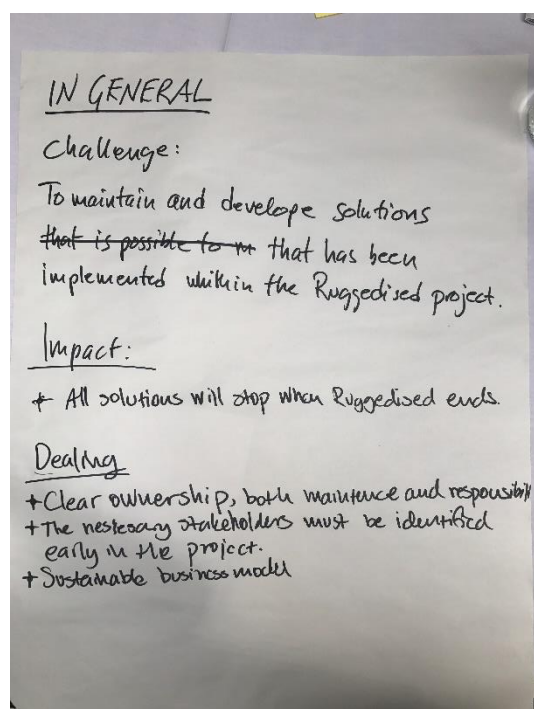 IN GENERAL
Challenge:
To maintain and develope solutions
that is possible to m that has been
implemented whithin the Ruggedised project.
Impact:
+ All solutions will stop when Ruggedised ends.
Dealing
+ Clear ownership, both maintence and responsibili
+ The nestesary stakeholders must be identified
early in the project.
+ Sustainable business model